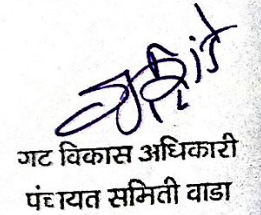 गट विकास अधिकारी
पंचायत समिती वाडा